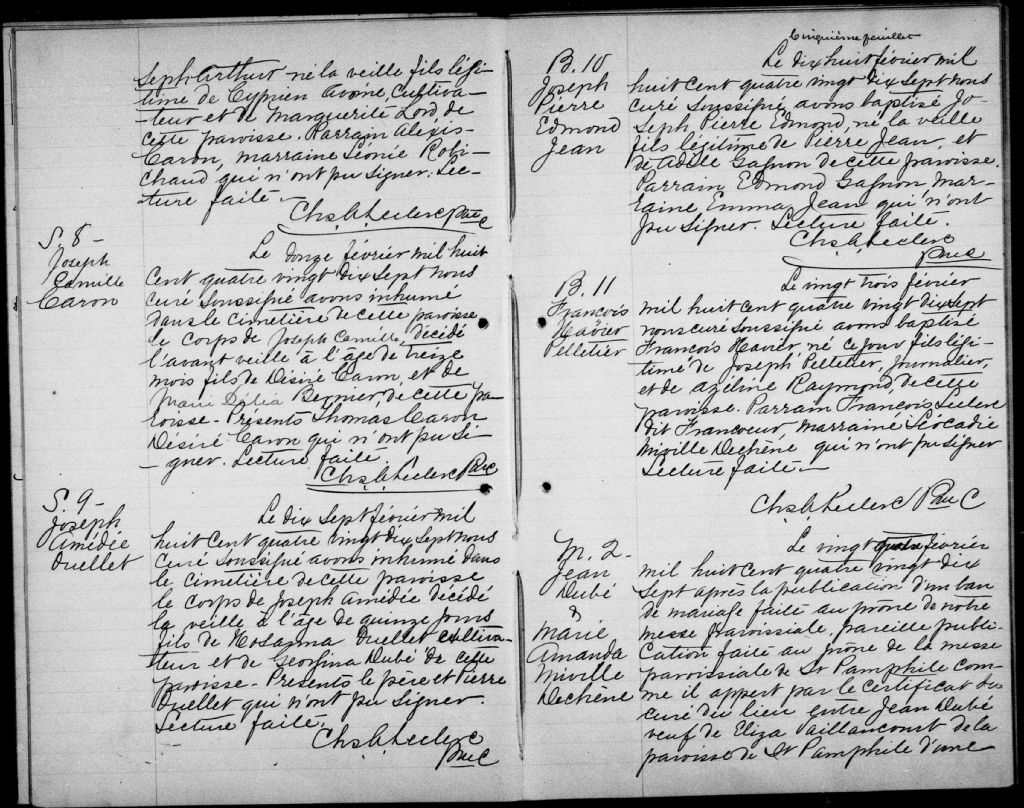 Seph Arthur né la veille fils légi-
time de Cyprien Avoine, Cultiva-
teur et de Marguerite Lord, de
cette paroisse. Parrain Alexis
Caron, marraine Léonie Robi-
chaud qui n'ont pu signer. Lec-
ture faite.
Chs. A. Leclerc Ptre C
S. 8 -
Joseph
Camille
Caron
Le douze février mil huit
Cent quatre vingt dix sept nous
curé soussigné avons inhumé
dans le cimetière de cette paroisse
le corps de Joseph Camille, décédé
l'avant veille à l'âge de treize
mois fils de Désiré Caron, et de
Marie Délia Bernier, de cette pa-
roisse - Présents Thomas Caron
Désiré Caron qui n'ont pu si-
-gner. Lecture faite.
Chs. A. Leclerc Ptre C
S. 9 -
Joseph
Amédie
Ouellet
Le dix sept février mil
huit Cent quatre vingt dix sept nous
curé soussigné avons inhumé dans
le cimetière de cette paroisse
le corps de Joseph Amédie décédé
la veille à l'âge de quinze jours
fils de Ouellet cultiva-
teur et de Georgina Dubé de cette
paroisse - Présents le père et Pierre
Ouellet qui n'ont pu signer.
Lecture faite.
Chs. A. Leclerc
Ptre C
Cinquième feuillet
B. 10
Joseph
Pierre
Edmond
Jean
Le dix huit février mil
huit Cent quatre vingt dix sept nous
curé soussigné, avons baptisé Jo-
seph Pierre Edmond, né la veille
fils légitime de Pierre Jean, et
de Adèle Gagnon de cette paroisse.
Parrain Edmond Gagnon Mar-
raine Emma Jean qui n'ont
pu signer. Lecture faite.
Chs. A. Leclerc
Ptre C
B. 11
François
Xavier
Pelletier
Le vingt trois février
mil huit Cent quatre vingt dix sept
nous curé soussigné avons baptisé
François Xavier né ce jour fils légi-
time de Joseph Pelletier, Journalier,
et de Azéline Raymond, de cette
paroisse. Parrain François Leclerc
dit Francoeur marraine Léocadie
Miville Dechêne qui n'ont pu signer
Lecture faite.
Chs. A. Leclerc Ptre C
M. 2 -
Jean
Dubé
&
Marie
Amanda
Miville
Dechêne
Le vingt quatre février
mil huit Cent quatre vingt dix
sept après la publication d'un ban
de mariage faite au prône de notre
messe paroissiale, pareille publi-
cation faite au prône de la messe
paroissiale de St Pamphile com-
me il appert par le certificat du
curé du lieu entre Jean Dubé
veuf de Eliza Vaillancourt de la
paroisse de St Pamphile d'une